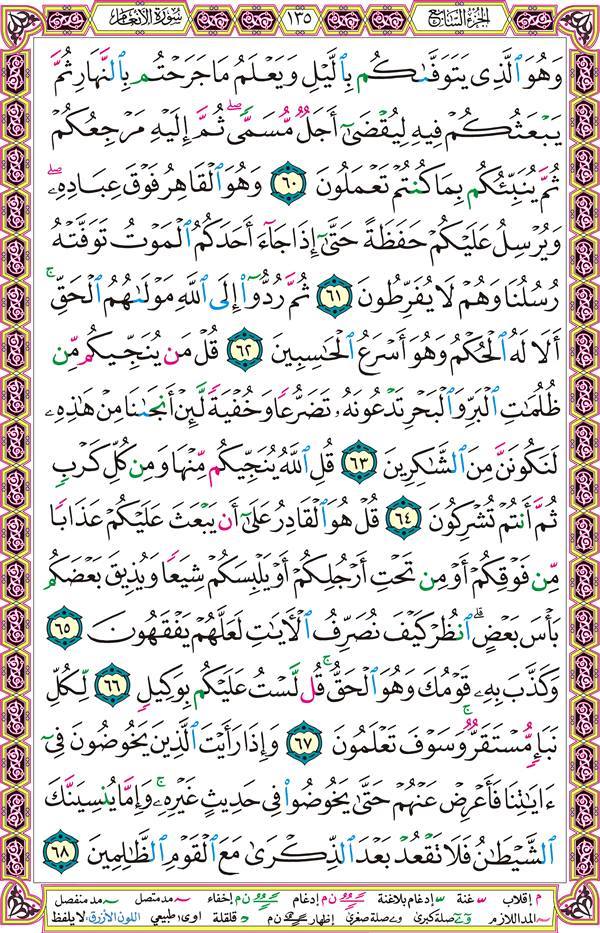 الجزء السابع
١٣٥
سورة الأنعام
وَهُوَ ٱلَّذِى يَتَوَفَّىٰكُم بِٱلَّيۡلِ وَيَعۡلَمُ مَا جَرَحۡتُم بِٱلنَّهَارِ ثُمَّ
يَبۡعَثُكُمۡ فِيهِ لِيُقۡضَىٰٓ أَجَلٌ مُّسَمًّىۖ ثُمَّ إِلَيۡهِ مَرۡجِعُكُمۡ
ثُمَّ يُنَبِّئُكُم بِمَا كُنتُمۡ تَعۡمَلُونَ ٦٠ وَهُوَ ٱلۡقَاهِرُ فَوۡقَ عِبَادِهِۦۖ
وَيُرۡسِلُ عَلَيۡكُمۡ حَفَظَةً حَتَّىٰٓ إِذَا جَآءَ أَحَدَكُمُ ٱلۡمَوۡتُ تَوَفَّتۡهُ
رُسُلُنَا وَهُمۡ لَا يُفَرِّطُونَ ٦١ ثُمَّ رُدُّوٓاْ إِلَى ٱللَّهِ مَوۡلَىٰهُمُ ٱلۡحَقِّۚ
أَلَا لَهُ ٱلۡحُكۡمُ وَهُوَ أَسۡرَعُ ٱلۡحَٰسِبِينَ ٦٢ قُلۡ مَن يُنَجِّيكُم مِّن
ظُلُمَٰتِ ٱلۡبَرِّ وَٱلۡبَحۡرِ تَدۡعُونَهُۥ تَضَرُّعًا وَخُفۡيَةً لَّئِنۡ أَنجَىٰنَا مِنۡ هَٰذِهِۦ
لَنَكُونَنَّ مِنَ ٱلشَّٰكِرِينَ ٦٣ قُلِ ٱللَّهُ يُنَجِّيكُم مِّنۡهَا وَمِن كُلِّ كَرۡبٍ
ثُمَّ أَنتُمۡ تُشۡرِكُونَ ٦٤ قُلۡ هُوَ ٱلۡقَادِرُ عَلَىٰٓ أَن يَبۡعَثَ عَلَيۡكُمۡ عَذَابًا
مِّن فَوۡقِكُمۡ أَوۡ مِن تَحۡتِ أَرۡجُلِكُمۡ أَوۡ يَلۡبِسَكُمۡ شِيَعًا وَيُذِيقَ بَعۡضَكُم
بَأۡسَ بَعۡضٍۗ ٱنظُرۡ كَيۡفَ نُصَرِّفُ ٱلۡأٓيَٰتِ لَعَلَّهُمۡ يَفۡقَهُونَ ٦٥
وَكَذَّبَ بِهِۦ قَوۡمُكَ وَهُوَ ٱلۡحَقُّۚ قُل لَّسۡتُ عَلَيۡكُم بِوَكِيلٍ ٦٦ لِّكُلِّ
نَبَإٍ مُّسۡتَقَرٌّۚ وَسَوۡفَ تَعۡلَمُونَ ٦٧ وَإِذَا رَأَيۡتَ ٱلَّذِينَ يَخُوضُونَ فِىٓ
ءَايَٰتِنَا فَأَعۡرِضۡ عَنۡهُمۡ حَتَّىٰ يَخُوضُواْ فِى حَدِيثٍ غَيۡرِهِۦۚ وَإِمَّا يُنسِيَنَّكَ
ٱلشَّيۡطَٰنُ فَلَا تَقۡعُدۡ بَعۡدَ ٱلذِّكۡرَىٰ مَعَ ٱلۡقَوۡمِ ٱلظَّٰلِمِينَ ٦٨
م إقلاب غنة إدغام بلاغنة ن م إدغام ن م إخفاء مد متصل مد منفصل
المد اللازم صلة كبرى صلة صغرى إظهار ن م قلقلة اوى طبيعي اللون الأزرق: لا يلفظ